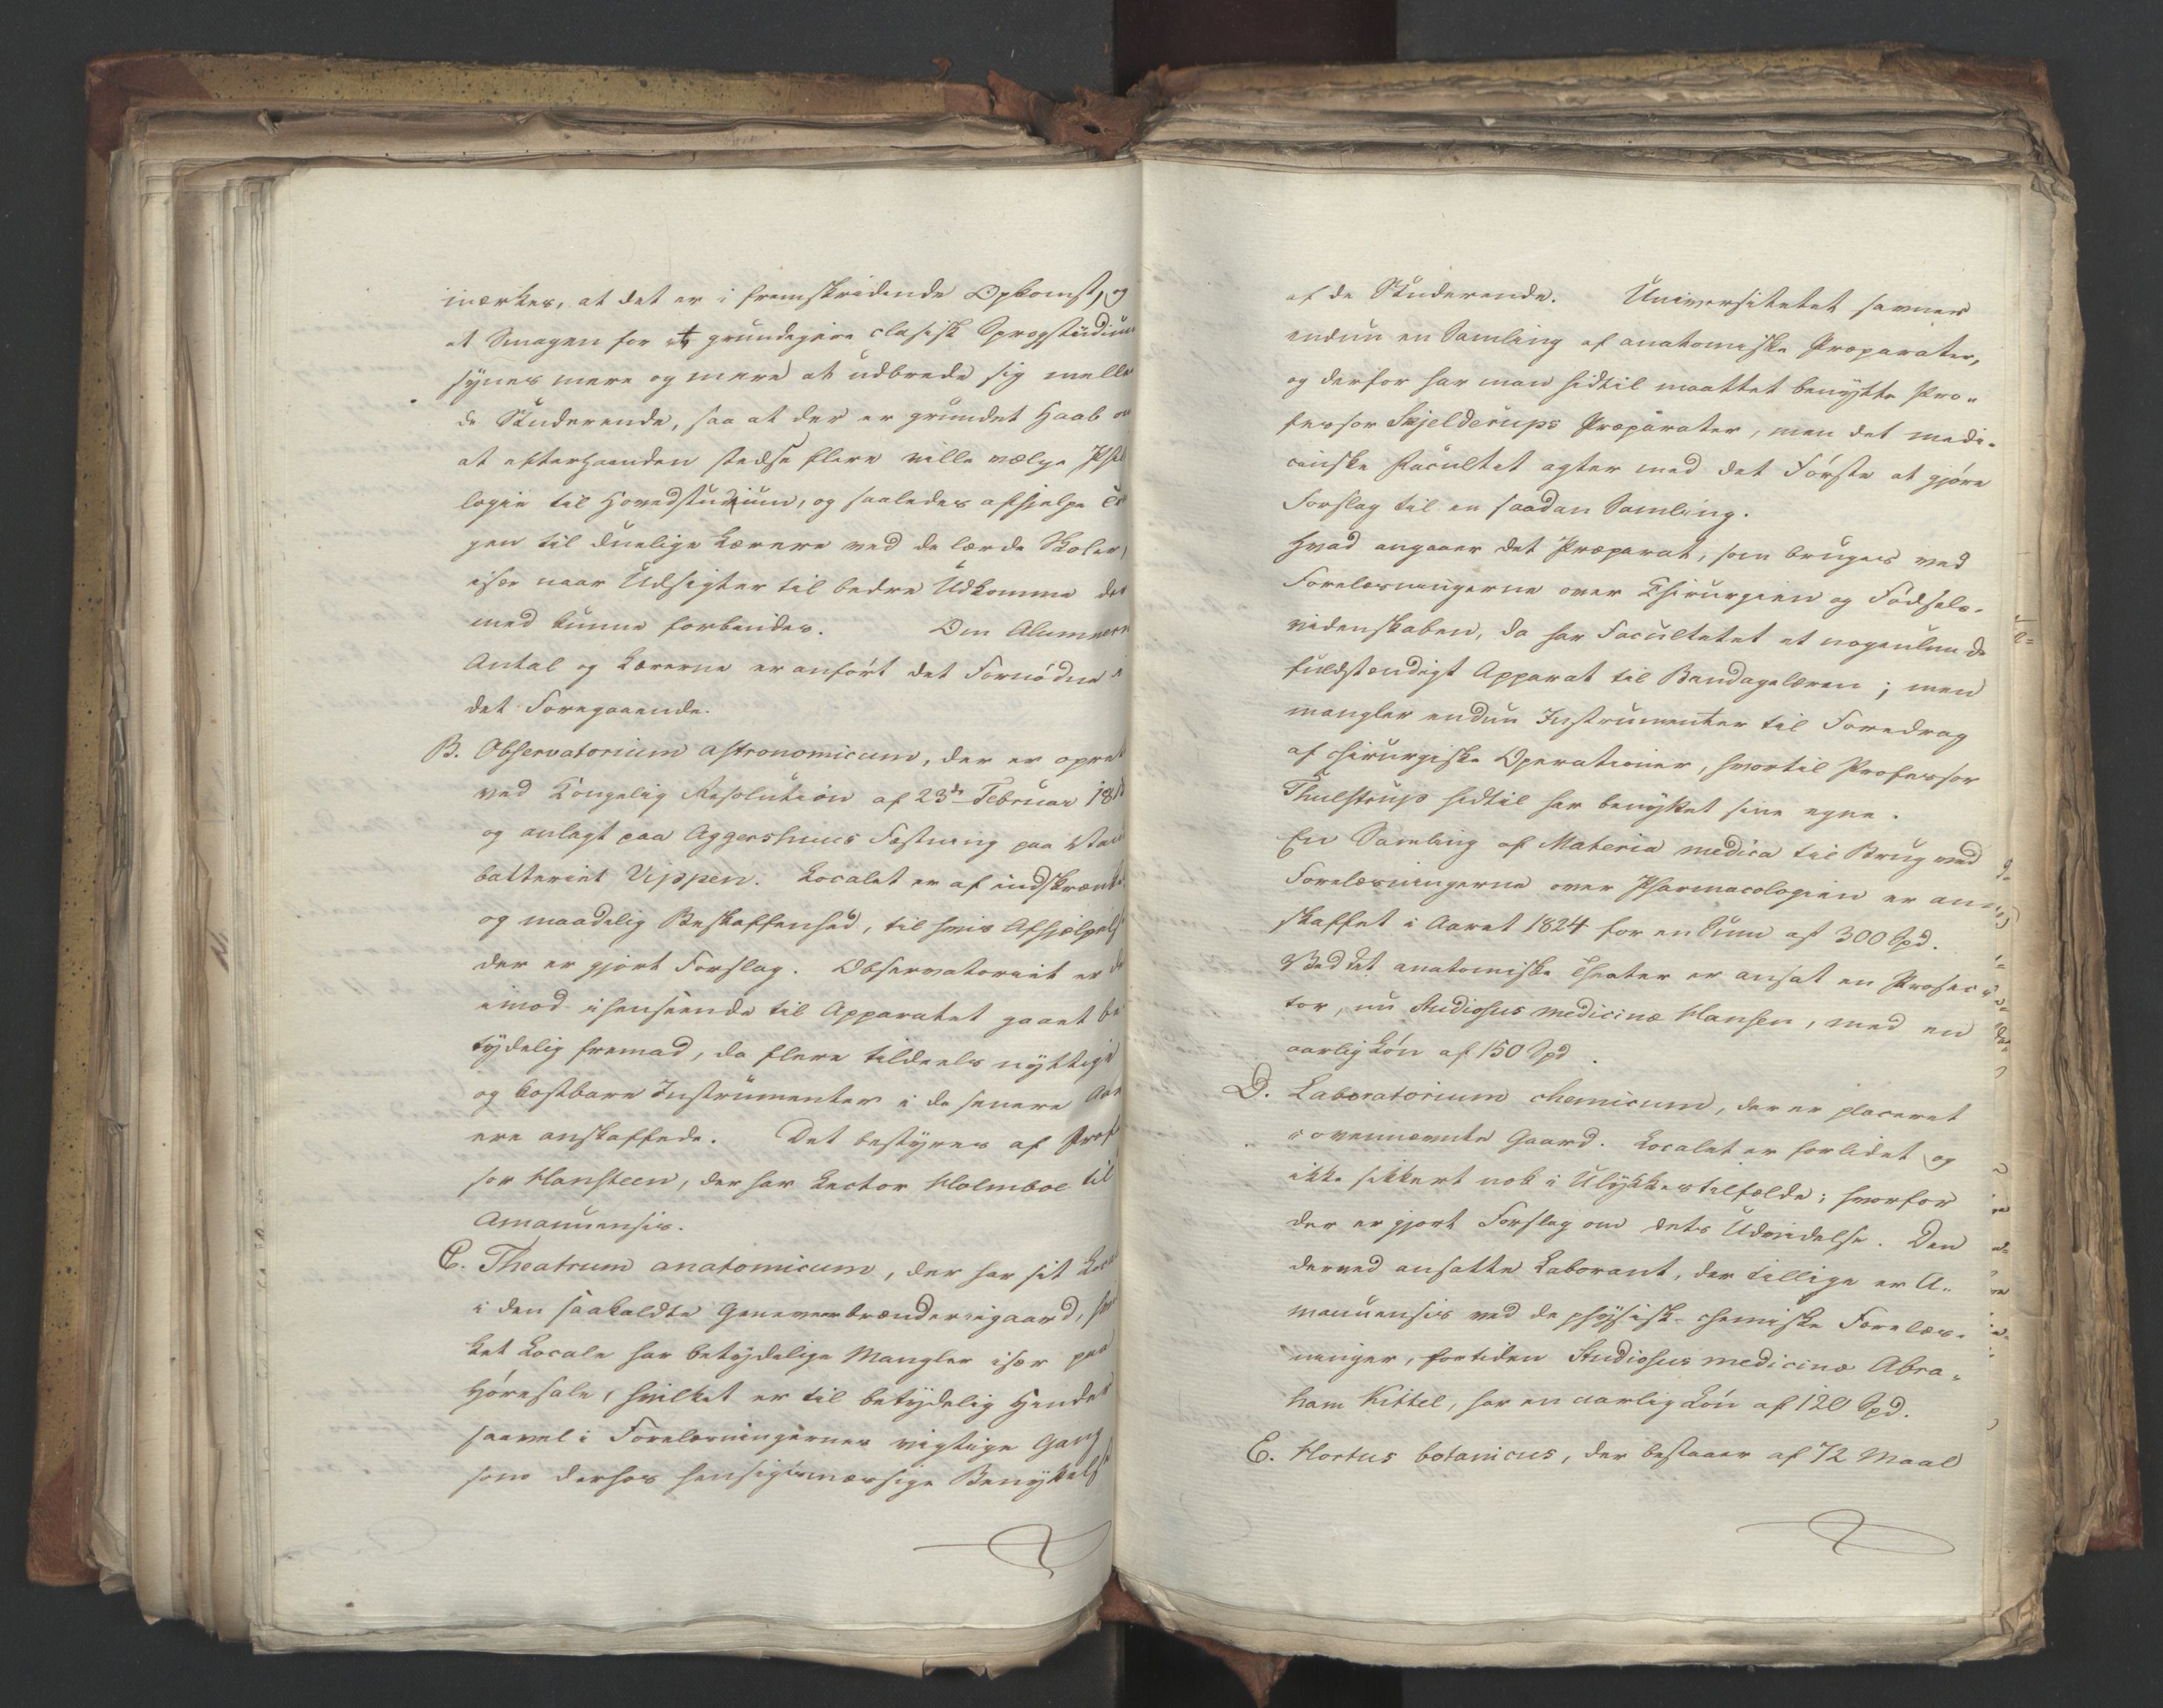 mærkes, at det er i fremskridende Opkomst, og
at Smagen for et grundigere clasisk Sprogstudium
synes mere og mere at udbrede sig melle
de Studerende, saa at der er grundet Haab om
at efterhaanden stedse flere ville vælge Phil
logie til Hovedstudium, og saaledes afhjelpe
gen til duelige Lærere ved de lærde Skoler,
især naar Udsigter til bedre Udkomme der
med kunne forbindes. Om Alumnern
Antal og Lærerne er anført det Fornødne i
det Foregaaende.
B. Observatorium astronomicum, der er opret
ved Kongelig Resolution af 23de Februar 18
og anlagt paa Aggershuus Fæstning paa
batteriet Vippen. Localet er af indskrænke
og maadelig Beskaffenhed, til hvis Afhjelpels
der er gjort Forslag. Observatoriet er de
imod i henseende til Apparatet gaaet be
tydelig fremad, da flere tildeels nyttige
og kostbare Instrumenter i de senere Aar
ere anskaffede. Det bestyres af Profe
sor Hansteen, der har Lector Holmboe til
Amanuensis.
C. Theatrum anatomicum, der har sit Loca
i den saakaldte Geneverbrænderiegaard, hvil
ket Locale har betydelige Mangler især paa
Høresale, hvilket er til betydelig Hinder
saavel i Forelæsningernes rigtige Gang
som dershos hensigtsmæssige Benyttelse
af de Studerende. Universitetet savner
endnu en Samling af anatomiske Præparater,
og derfor har man hidtil maattet benytte Pro„
fessor Skjelderups Præparater, men det medi„
cinske Facultet agter med det Første at gjøre
Forslag til en saadan Samling.
Hvad angaaer det Præparat, som bruges ved
Forelæsningerne over Chirurgien og Fødsels„
videnskaben, da har Facultetet et nogenlunde
fuldstændigt Apparat til Bandagelæren; men
mangler endnu Instrumenter til Foredrag
af chirurgiske Operationer, hvortil Professor
Thulstrup hidtil har benyttet sine egne.
En Samling af Materia medica til Brug ved
Forelæsningerne over Pharmacologien er an„
skaffet i Aaret 1824 for en Sum af 300 Spd.
Ved det anatomiske Theater er ansat en Prosec„
tor, nu Studiosus medicinæ Hansen, med en
aarlig Løn af 150 Spd.
D. Laboratorium chemicum, der er placeret
i ovennævnte Gaard. Localet er forlidet og
ikke sikkert nok i Ulykkestilfælde; hvorfor
der er gjort Forslag om dets Udvidelse. Den
derved ansatte Laborant, der tillige er A„
manuensis ved de physisk-chemiske Forelæs„
ninger, fortiden Studiosus medicinæ Abra„
ham Kittel, har en aarlig Løn af 120 Spd.
E. Hortus botanicus, der bestaaer af 72 Maal